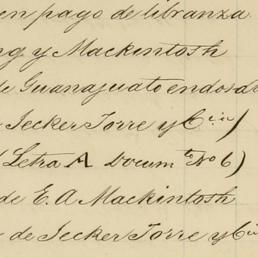 en pago de libranza
ng y Mackintosh
de Guanajuato endosda
e Jecker Torre y Cia)
(Letra A Documto No 6)
de E. A Mackintosh
de Jecker Torre y Cia